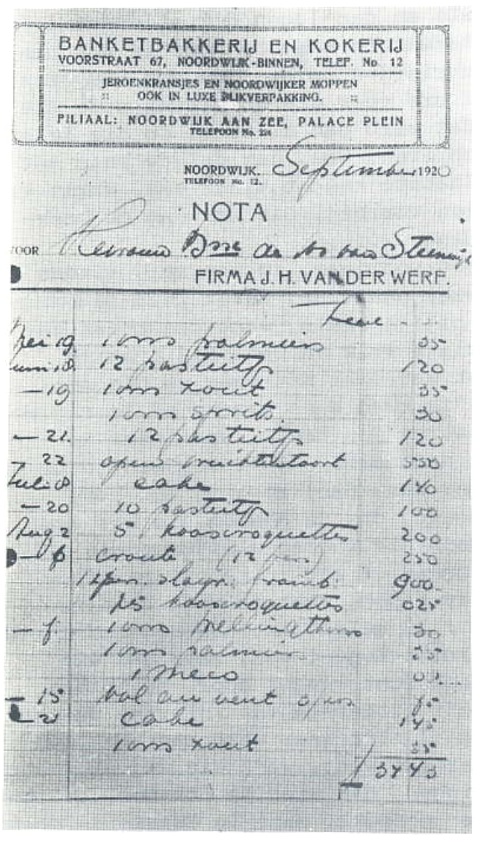 BANKETBAKKERIJ EN KOKERIJ
VOORSTRAAT 67, NOORDWIJK-BINNEN, TELEF. No. 12
JEROENKRANSJES EN NOORDWIJKER MOPPEN
:: OOK IN LUXE BLIKVERPAKKING. ::
FILIAAL: NOORDWIJK AAN ZEE, PALACE PLEIN
TELEFOON No. 224
NOORDWIJK. September 1920
TELEFOON No. 12.
NOTA
OOR Mevrouw Bsse de van
FIRMA J. H. VAN DER WERF.
Mei 19 1 ons palmiers 35
Juni 18 12 pasteitjs 120
—19 1 ons zout 35
1 ons sprits 30
— 21 12 pasteitjs 120
— 22 open vruchtentaart 550
Juli 8 cake 140
—20 10 pasteitjs 100
Aug 2 5 kaascroquettes 200
— 6 croute (12 pers) 250
12 pers. slagr. framb. 900
25 kaascroquettes 625
1 ons 30
1 ons palmiers 35
1
— 15 vol au vent
— 21 cake 145
1 ons zout 35
3745